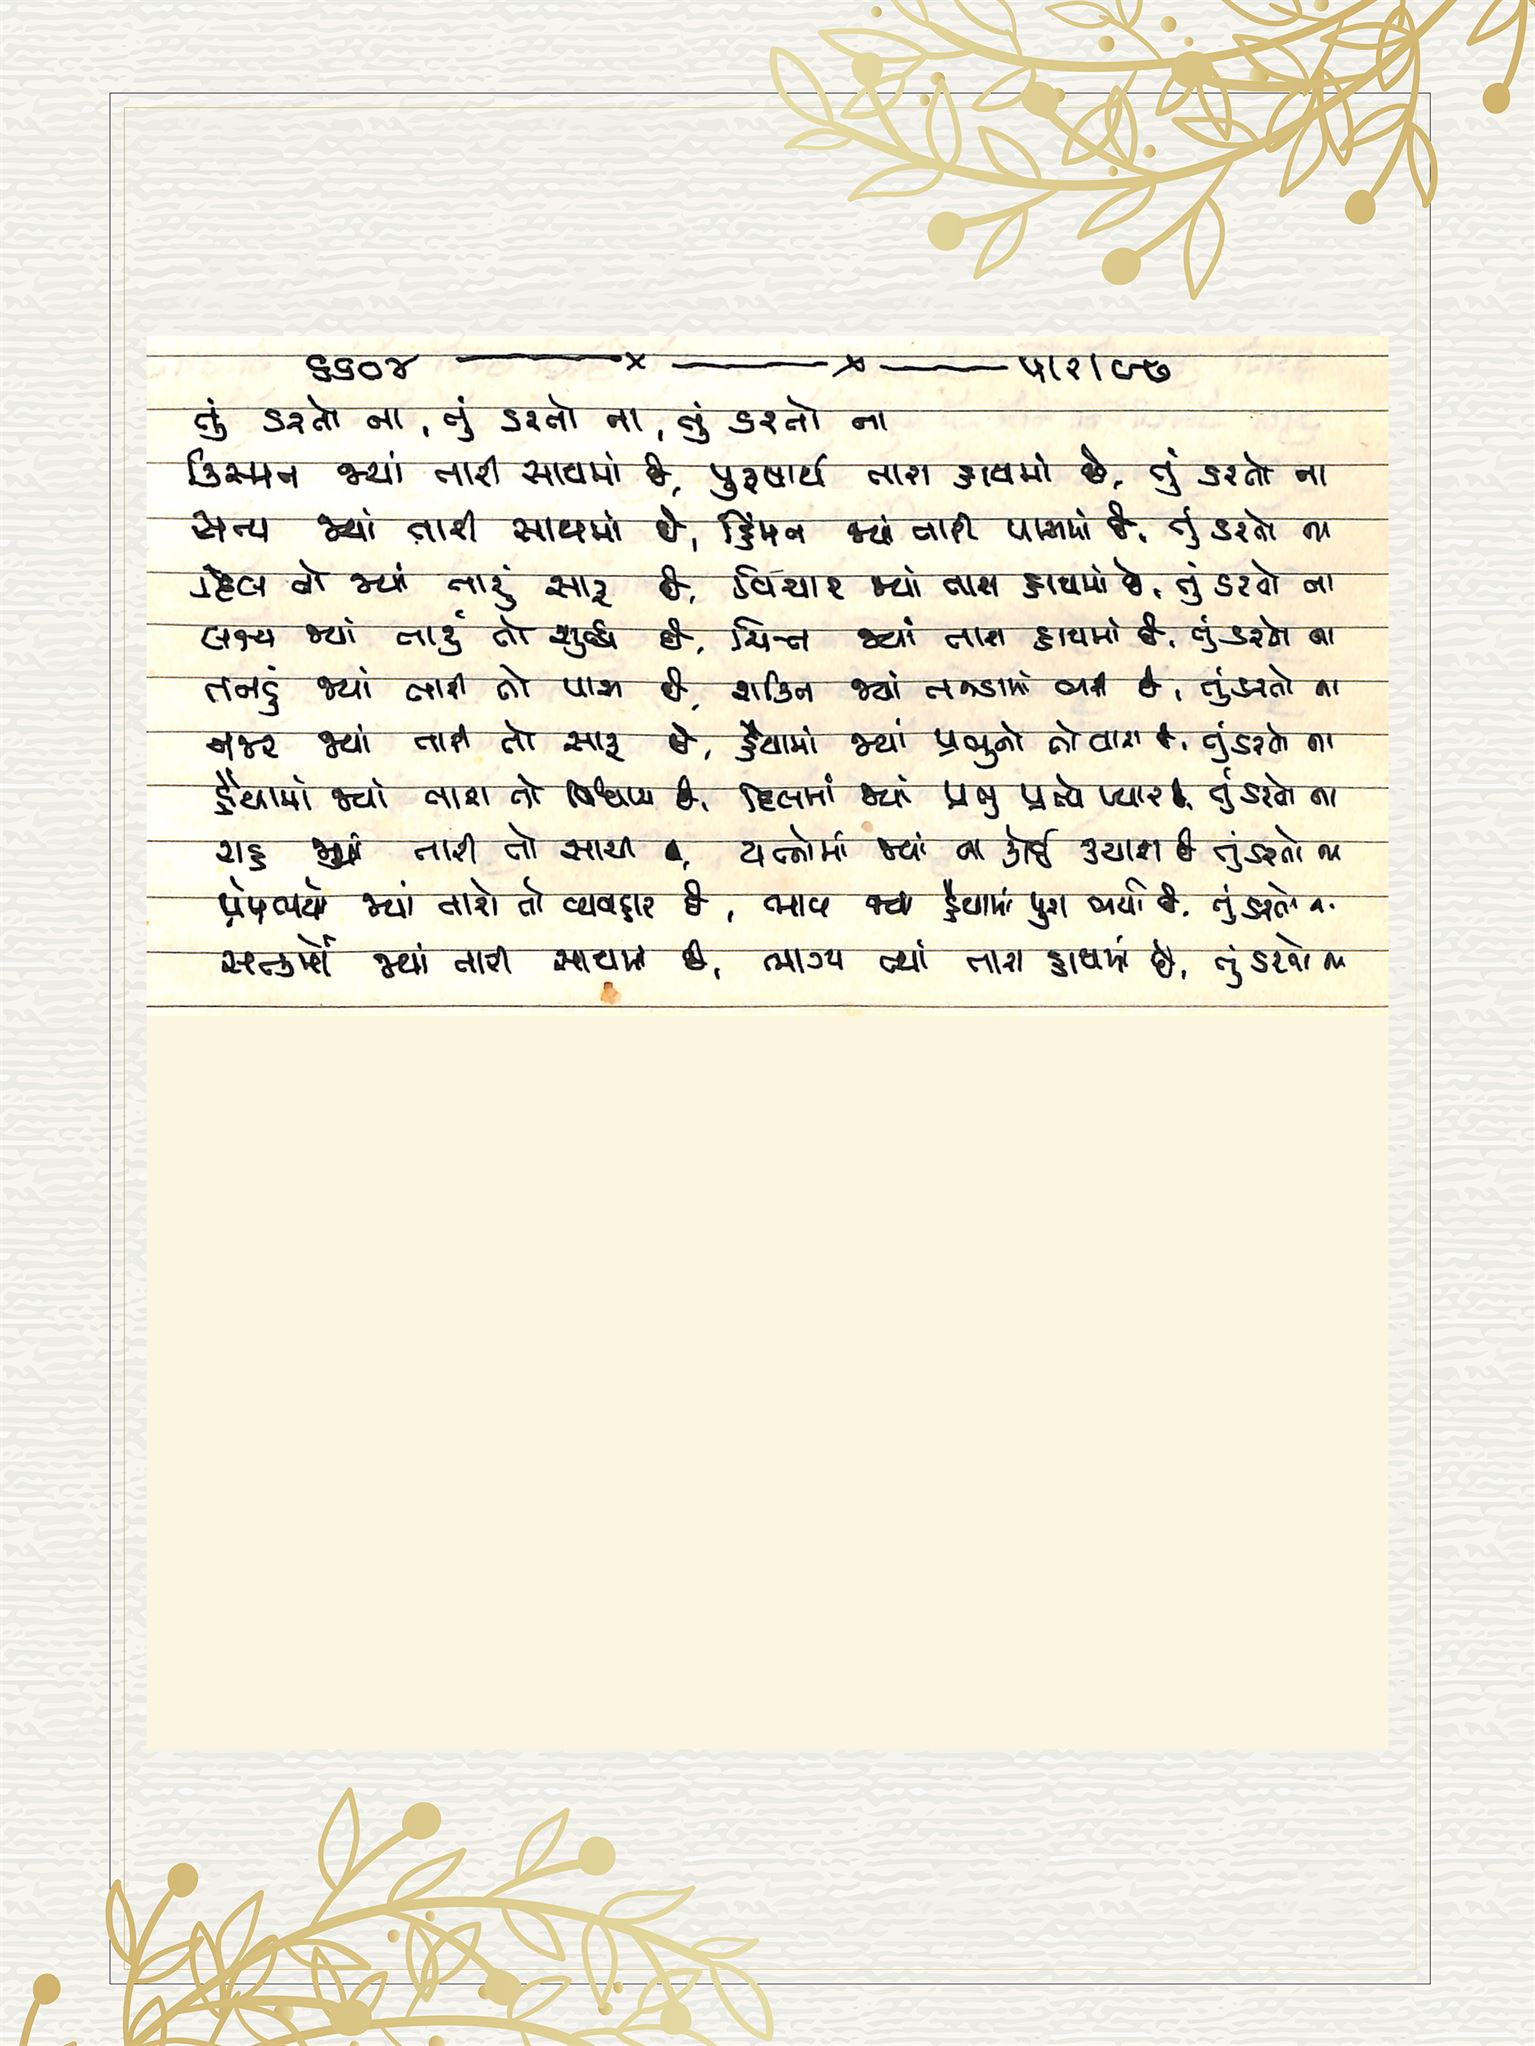 ૬૬૦૪ —— x —— x —— ૫।૨।૯૭
તું ડરતો ના, તું ડરતો ના, તું ડરતો ના
કિસ્મત જ્યાં તારી સાથમાં છે, પુરૂષાર્થ તારા હાથમાં છે, તું ડરતો ના
સત્ય જ્યાં તારી સાથમાં છે, હિંમત જ્યાં તારી પાસમાં છે, તું ડરતો ના
જ્યાં તારું સારૂ છે, વિચાર જ્યાં તારા હાથમાં છે, તું ડરતો ના
લક્ષ્ય જ્યાં તારું તો શુદ્ધ છે, ચિત્ત જ્યાં તારા હાથમાં છે, તું ડરતો ના
જ્યાં તારી તો પાસ છે, શક્તિ જ્યાં તનડામાં ભરી છે, તું ડરતો ના
નજર જ્યાં તારી તો સારૂ છે, હૈયામાં જ્યાં પ્રભુનો તો વાસ છે, તું ડરતો ના
હૈયામાં જ્યાં તારા તો વિશ્વાસ છે, દિલમાં જ્યાં પ્રભુ પ્રત્યે પ્યાર છે, તું ડરતો ના
રાહ જ્યાં તારી તો સાચી છે, યત્નોમાં જ્યાં ના કોઈ કચાશ છે તું ડરતો ના
પ્રેમભર્યો જ્યાં તારો તો વ્યવહાર છે, ભાવ જ્યાં હૈયામાં પુરા ભર્યા છે, તું ડરતો ના
સત્કર્મો જ્યાં તારી સાથમાં છે, ભાગ્ય ત્યાં તારા હાથમાં છે, તું ડરતો ના